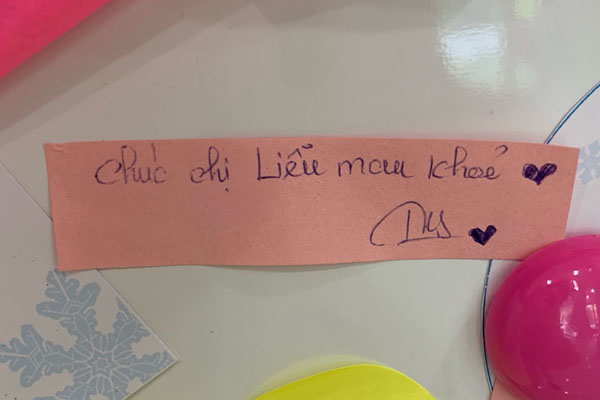 Chúc chị Liễu mau khoẻ